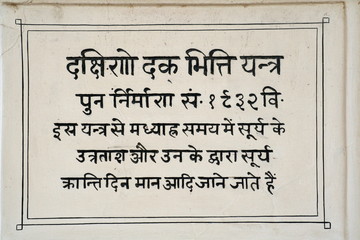 दक्षिराो दक् भित्ति यन्त्र
पुन र्निर्मारा सं॰ १९३२ वि॰
इस यन्त्र से मध्याह्न समय में सूर्य के
उत्रताश और उन के द्वारा सूर्य
क्रान्ति दिन मान आदि जाने जाते हैं